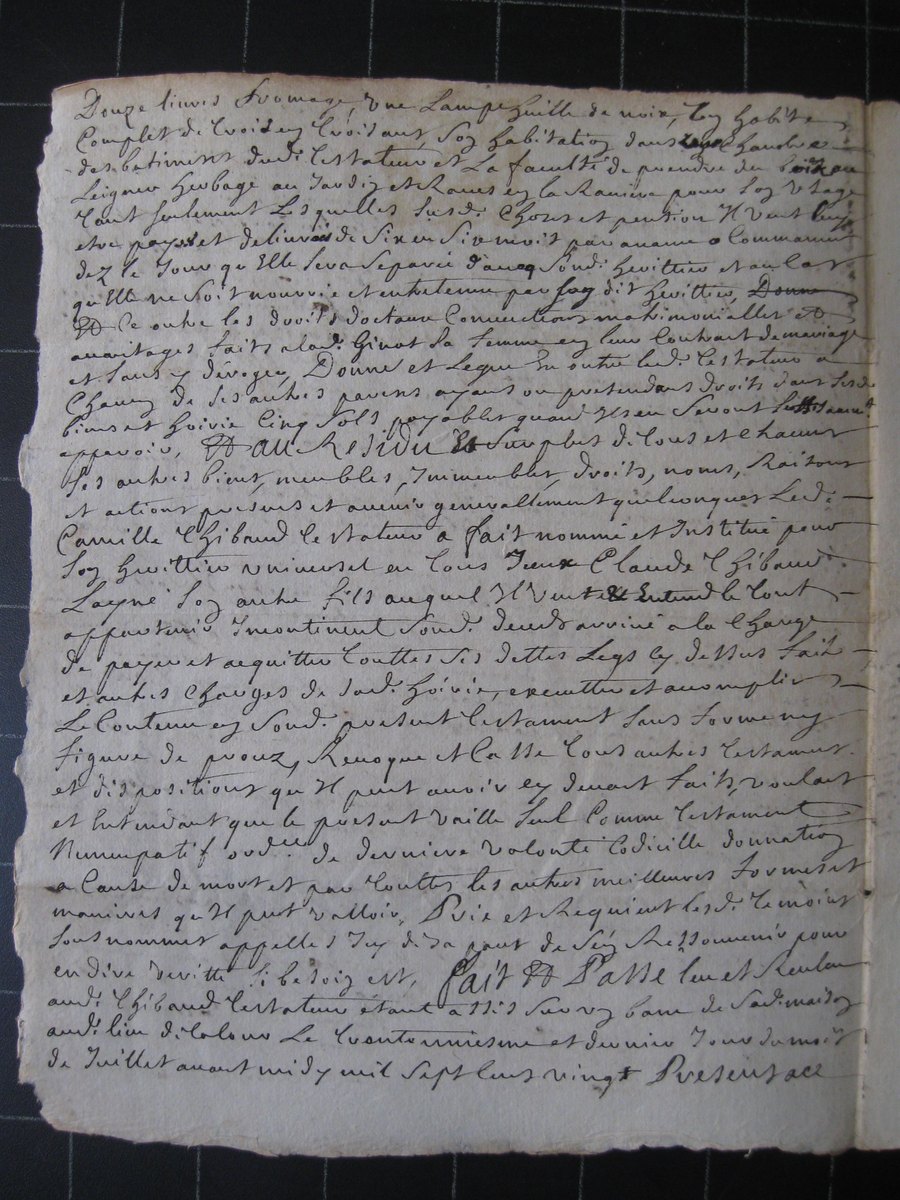 Douze livres fromage, une Lampe huille de noix, Son habit
Complet de Trois en Trois ans, Son habitation dans une Chambre
des batiment dud. Testateur et La faculté de prendre du bois au
Leigner herbage au Jardin et Raues en la Raviere pour Son Usage
Tant Seulement Lesquelles Susd. Choses et pention Il Veut luy
etre payes et delivrés de Six en Six mois par avance a Commancer
dez le Jour qu'Elle Sera Separée d'aueq Sond. herittier et au Cas
qu'Elle ne Soit nourrie et entretenue par Son dit herittier, Donne
Et Ce outre les droits doctaux Conventions matrimonialles et
avantages faits a lad. Ginot Sa femme en leur Contract de mariage
et Sans y deroger, Donne et Legue En outre led. Testateur a
Chacun de Ses autres parens ayans ou pretendans droits dans Sesd.
biens et hoirie Cinq Sols payables quand Ils en Seront
apparoir, Et au Residu Et Surplus de Tous et Chacuns
Ses autres biens, meubles, Immeubles, droits, noms, Raisons
et actions presens et auenir generallement quelconques Led.
Camille Thibaud Testateur a fait nommé et Institué pour
Son herittier universel en Tous Iceux Claude Thibaud
Layné Son autre fils auquel Il Veut & Entend le Tout
appartenir Incontinent Sond. deceds arrivé a la Charge
de payer et acquitter Touttes Ses dettes Legs cy dessus faits
et autres Charges de Sad. hoirie, executter et accomplir
Le Contenu en Sond. present Testament Sans forme ny
figure de proux, Revoque et Casse Tous autres Testament
et dispositions qu'Il peut auoir cy devant faits, voulant
et Entendant que le present vaille Seul Comme Testament
Nuncupatif ord.re de derniere volonté Codicille donnation
a Cause de mort et par Touttes les autres meilleures formes et
manieres qu'Il peut valloir, Prie et Requient lesd. Temoins
Sous nommes appelles Icy de Sa part de S'en Ressouvenir pour
en dire veritté Si besoin est, fait Et Passé leu et Releu
aud. Thibaud Testateur étant assis Sur un banc de Sad. maison
aud. lieu de Colour Le Trenteuniesme et dernier Jour du mois
de Juillet auant midy mil Sept Cents vingt Presens ace